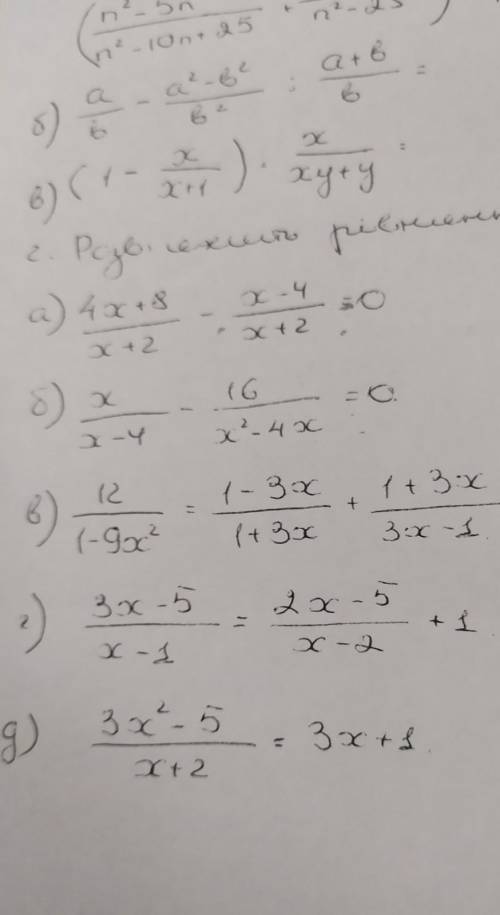 (n²-5n/n²-10n+25 + /n²-25)
б) a/b - a²-b²/b² : a+b/b =
в) (1 - x/x+1) · x/xy+y =
2.
а) 4x+8/x+2 - x-4/x+2 = 0
б) x/x-4 - 16/x²-4x = 0.
в) 12/1-9x² = 1-3x/1+3x + 1+3x/3x-1.
г) 3x-5/x-1 = 2x-5/x-2 + 1.
д) 3x²-5/x+2 = 3x+1.